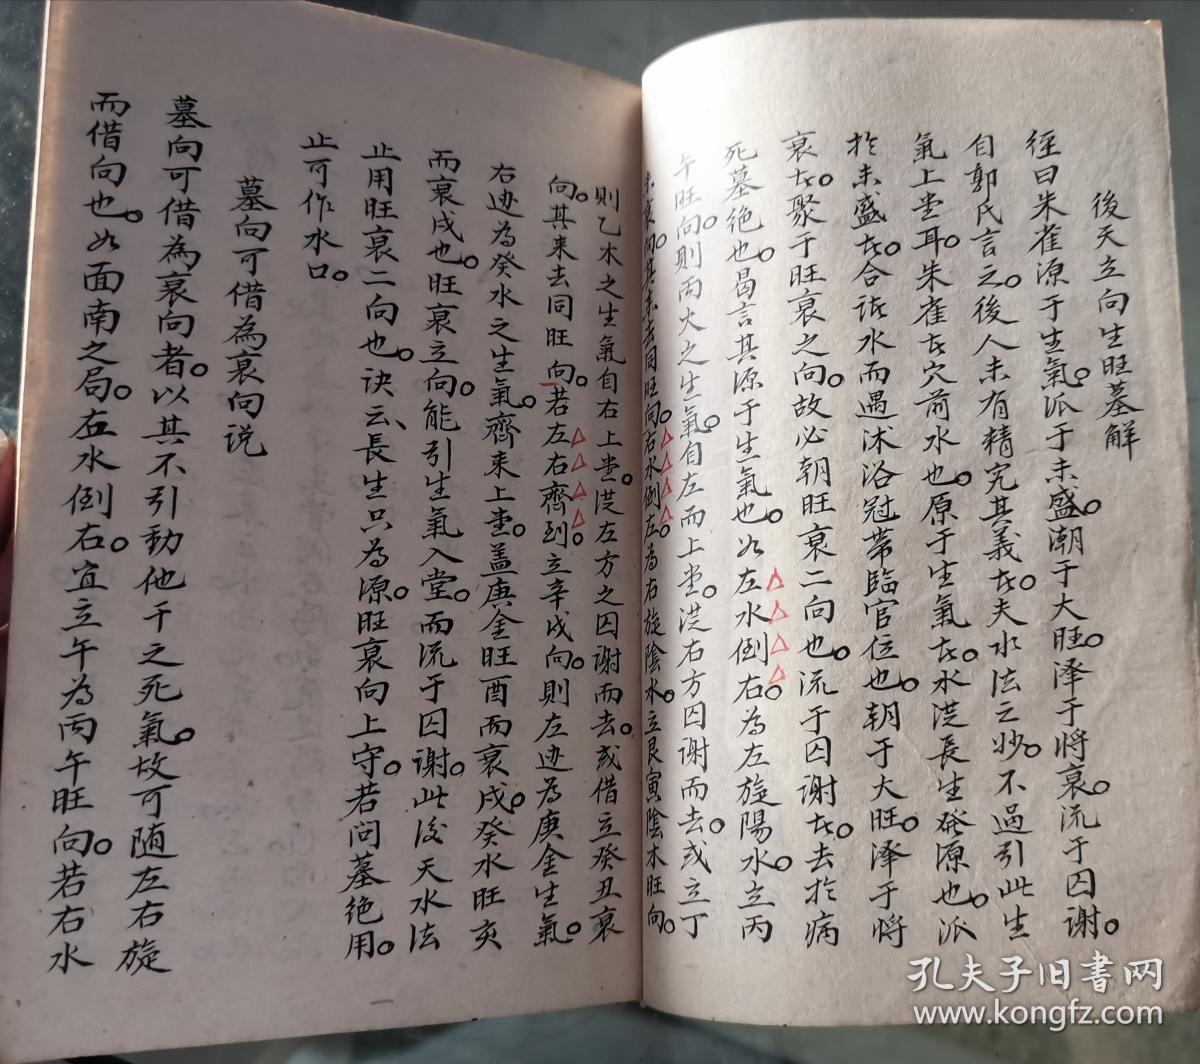 後天立向生旺墓解
經曰朱雀源于生氣。派于未盛。潮于大旺。泽于將衰。流于囚谢。
自郭氏言之。後人未有精究其義。夫水法之妙。不過引此生
氣上堂耳。朱雀穴前水也。原于生氣。水從長生發源也。派
於未盛。合該水而遇沭浴冠帶臨官位也。朝于大旺。泽于將
衰。聚于旺衰之向。故必朝旺衰二向也。流于囚谢。去於病
死墓绝也。曷言其源于生氣也。如左水倒右。為左旋陽水。立丙
午旺向。則丙火之生氣。自左而上堂。從右方囚谢而去。或立丁
未衰向。其来去同旺向。右水倒左。為右旋陰水。立艮寅陰木旺向。
則乙木之生氣自右上堂。從左方之囚谢而去。或借立癸丑衰
向。其来去同旺向。若左右齊到。立辛戌向。則左边為庚金生氣。
右边為癸水之生氣。齊来上堂。盖庚金旺酉而衰戌。癸水旺亥
而衰戌也。旺衰立向。能引生氣入堂。而流于囚谢。此後天水法
止用旺衰二向也。诀云、長生只為源。旺衰向上守。若问墓绝用。
止可作水口。
墓向可借為衰向说
墓向可借為衰向者。以其不引動他干之死氣。故可随左右旋
而借向也。如面南之局。左水倒右。宜立午為丙午旺向。若右水
孔夫子旧書网
www.kongfz.com